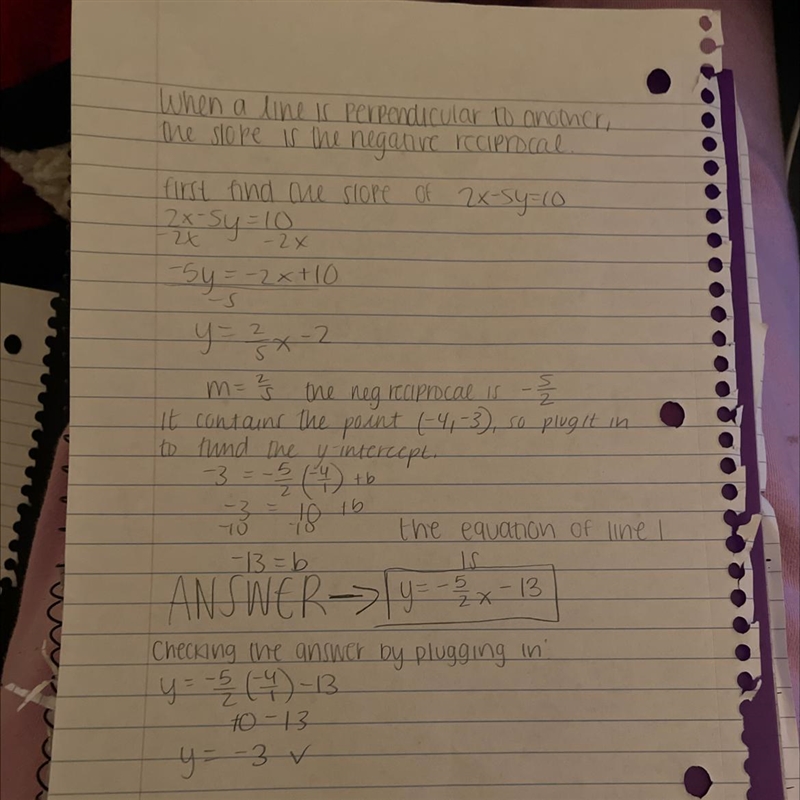 When a line is perpendicular to another,
the slope is the negative reciprocal.
first find the slope of 2x-5y=10
2x-5y=10
-2x -2x
-5y = -2x+10
-5
y = 2/5 x - 2
m = 2/5 the neg reciprocal is -5/2
it contains the point (-4,-3), so plug it in
to fund the y-intercept.
-3 = -5/2 (-4/1) + b
-3 = 10 + b
-10 -10
-13 = b
the equation of line l
is
ANSWER → y = -5/2 x - 13
Checking the answer by plugging in:
y = -5/2 (-4/1) - 13
10 - 13
y = -3 ✓